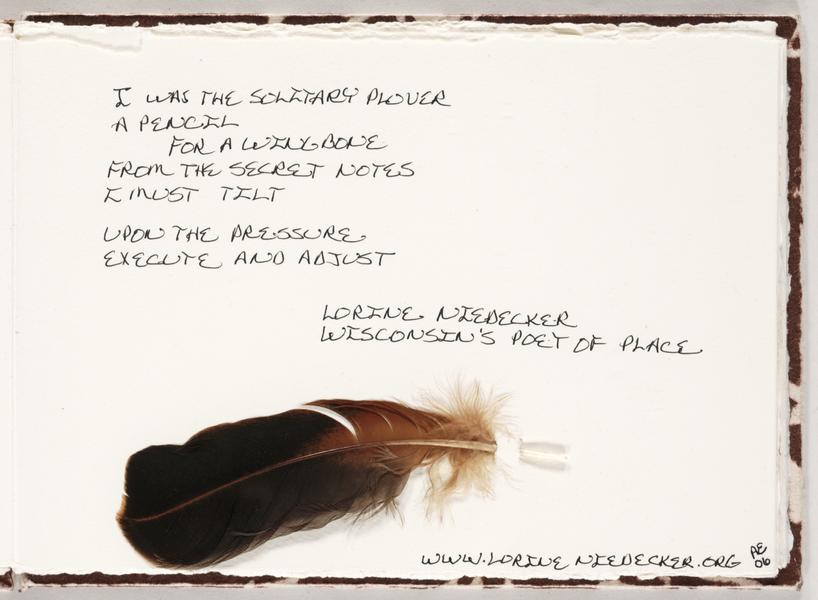 I WAS THE SOLITARY PLOVER
A PENCIL
FOR A WING-BONE
FROM THE SECRET NOTES
I MUST TILT
UPON THE PRESSURE
EXECUTE AND ADJUST
LORINE NIEDECKER
WISCONSIN'S POET OF PLACE
WWW.LORINE NIEDECKER.ORG
AE
06